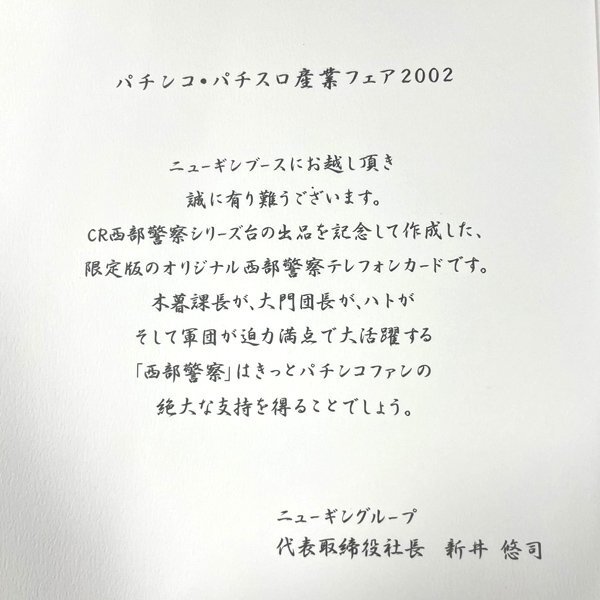 パチンコ・パチスロ産業フェア2002
ニューギンブースにお越し頂き
誠に有り難うございます。
CR西部警察シリーズ台の出品を記念して作成した、
限定版のオリジナル西部警察テレフォンカードです。
木暮課長が、大門団長が、ハトが
そして軍団が迫力満点で大活躍する
「西部警察」はきっとパチンコファンの
絶大な支持を得ることでしょう。
ニューギングループ
代表取締役社長 新井 悠司